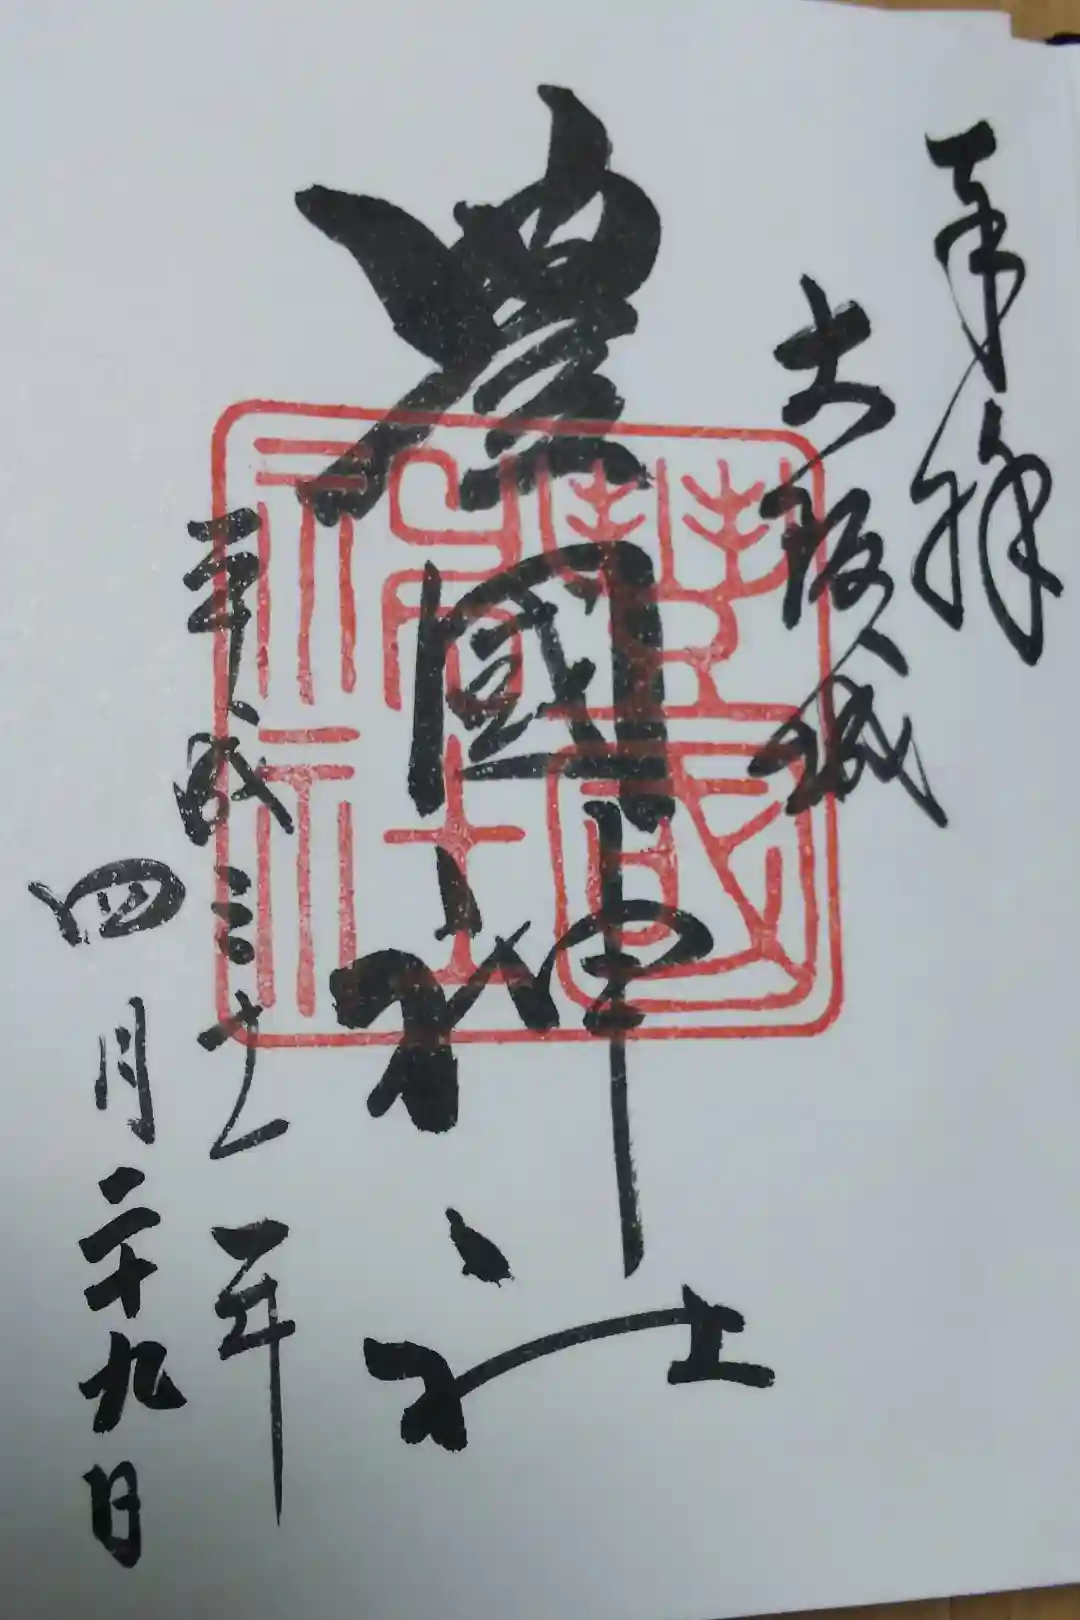 奉拝
大阪城
豊國神社
平成三十一年
四月二十九日
豊國
神社